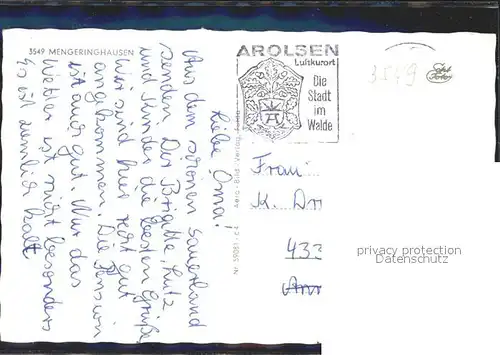 3549 MENGERINGHAUSEN
Liebe Oma!
Aus dem schönen Sauerland
senden Dir Brigitte, Lutz
und Kinder die besten Grüße
Wir sind hier gut
angekommen. Die Pension
ist auch gut. Nur das
Wetter ist nicht besonders
Es ist ziemlich kalt
AROLSEN
Luftkurort
Die
Stadt
im
Walde
3549
Frau
K.
433
privacy protection
Datenschutz